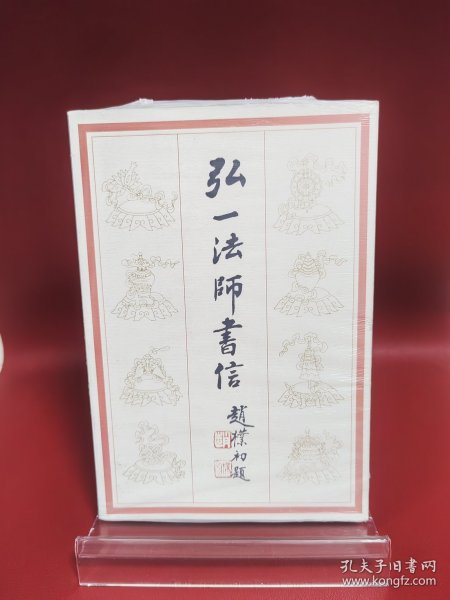 弘一法師書信
趙樸初題
孔夫子旧书网
www.kongfz.com